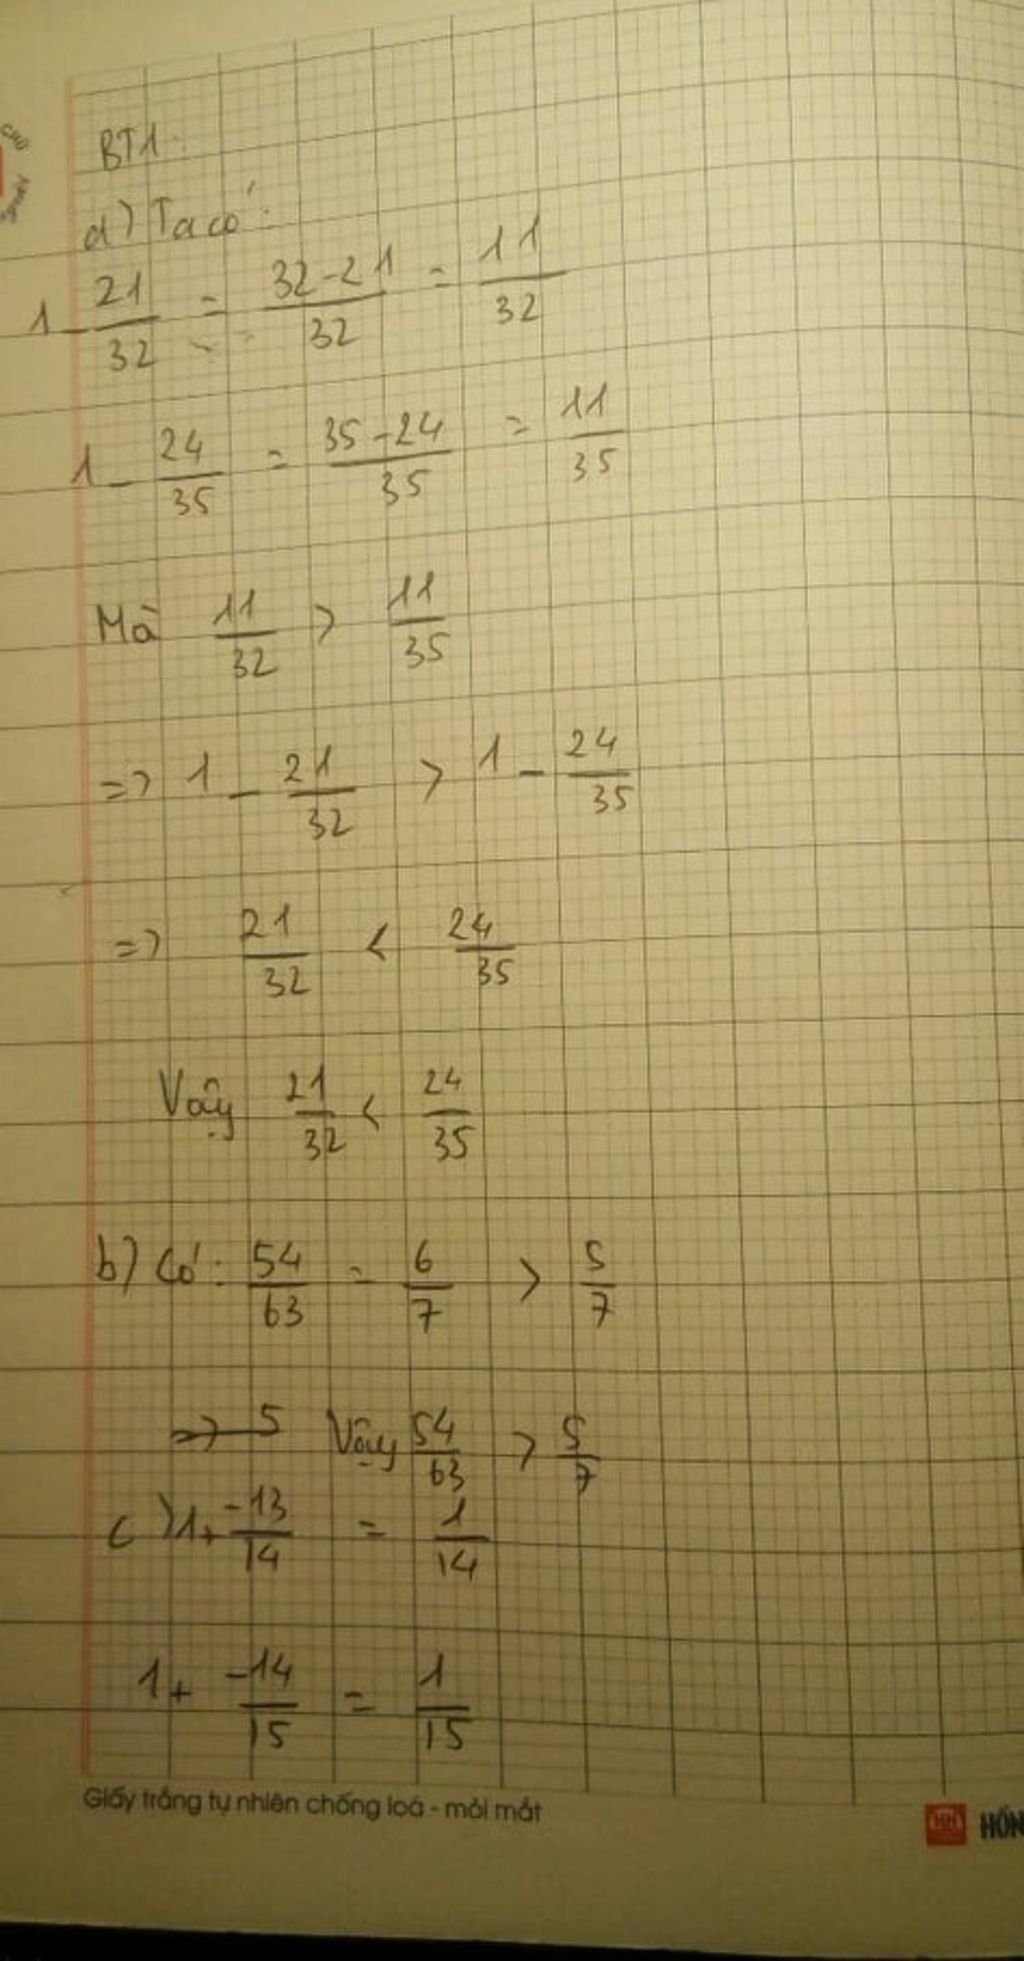 BT1.
a) Ta có:
1 - 21/32 = 32-21/32 = 11/32
1 - 24/35 = 35-24/35 = 11/35
Mà 11/32 > 11/35
=> 1 - 21/32 > 1 - 24/35
=> 21/32 < 24/35
Vậy 21/32 < 24/35
b) Có: 54/63 = 6/7 > 5/7
=> 5 Vậy 54/63 > 5/7
c) 1 + -13/14 = 1/14
1 + -14/15 = 1/15
Giấy trắng tự nhiên chống loá - mỏi mắt
HH HỒN